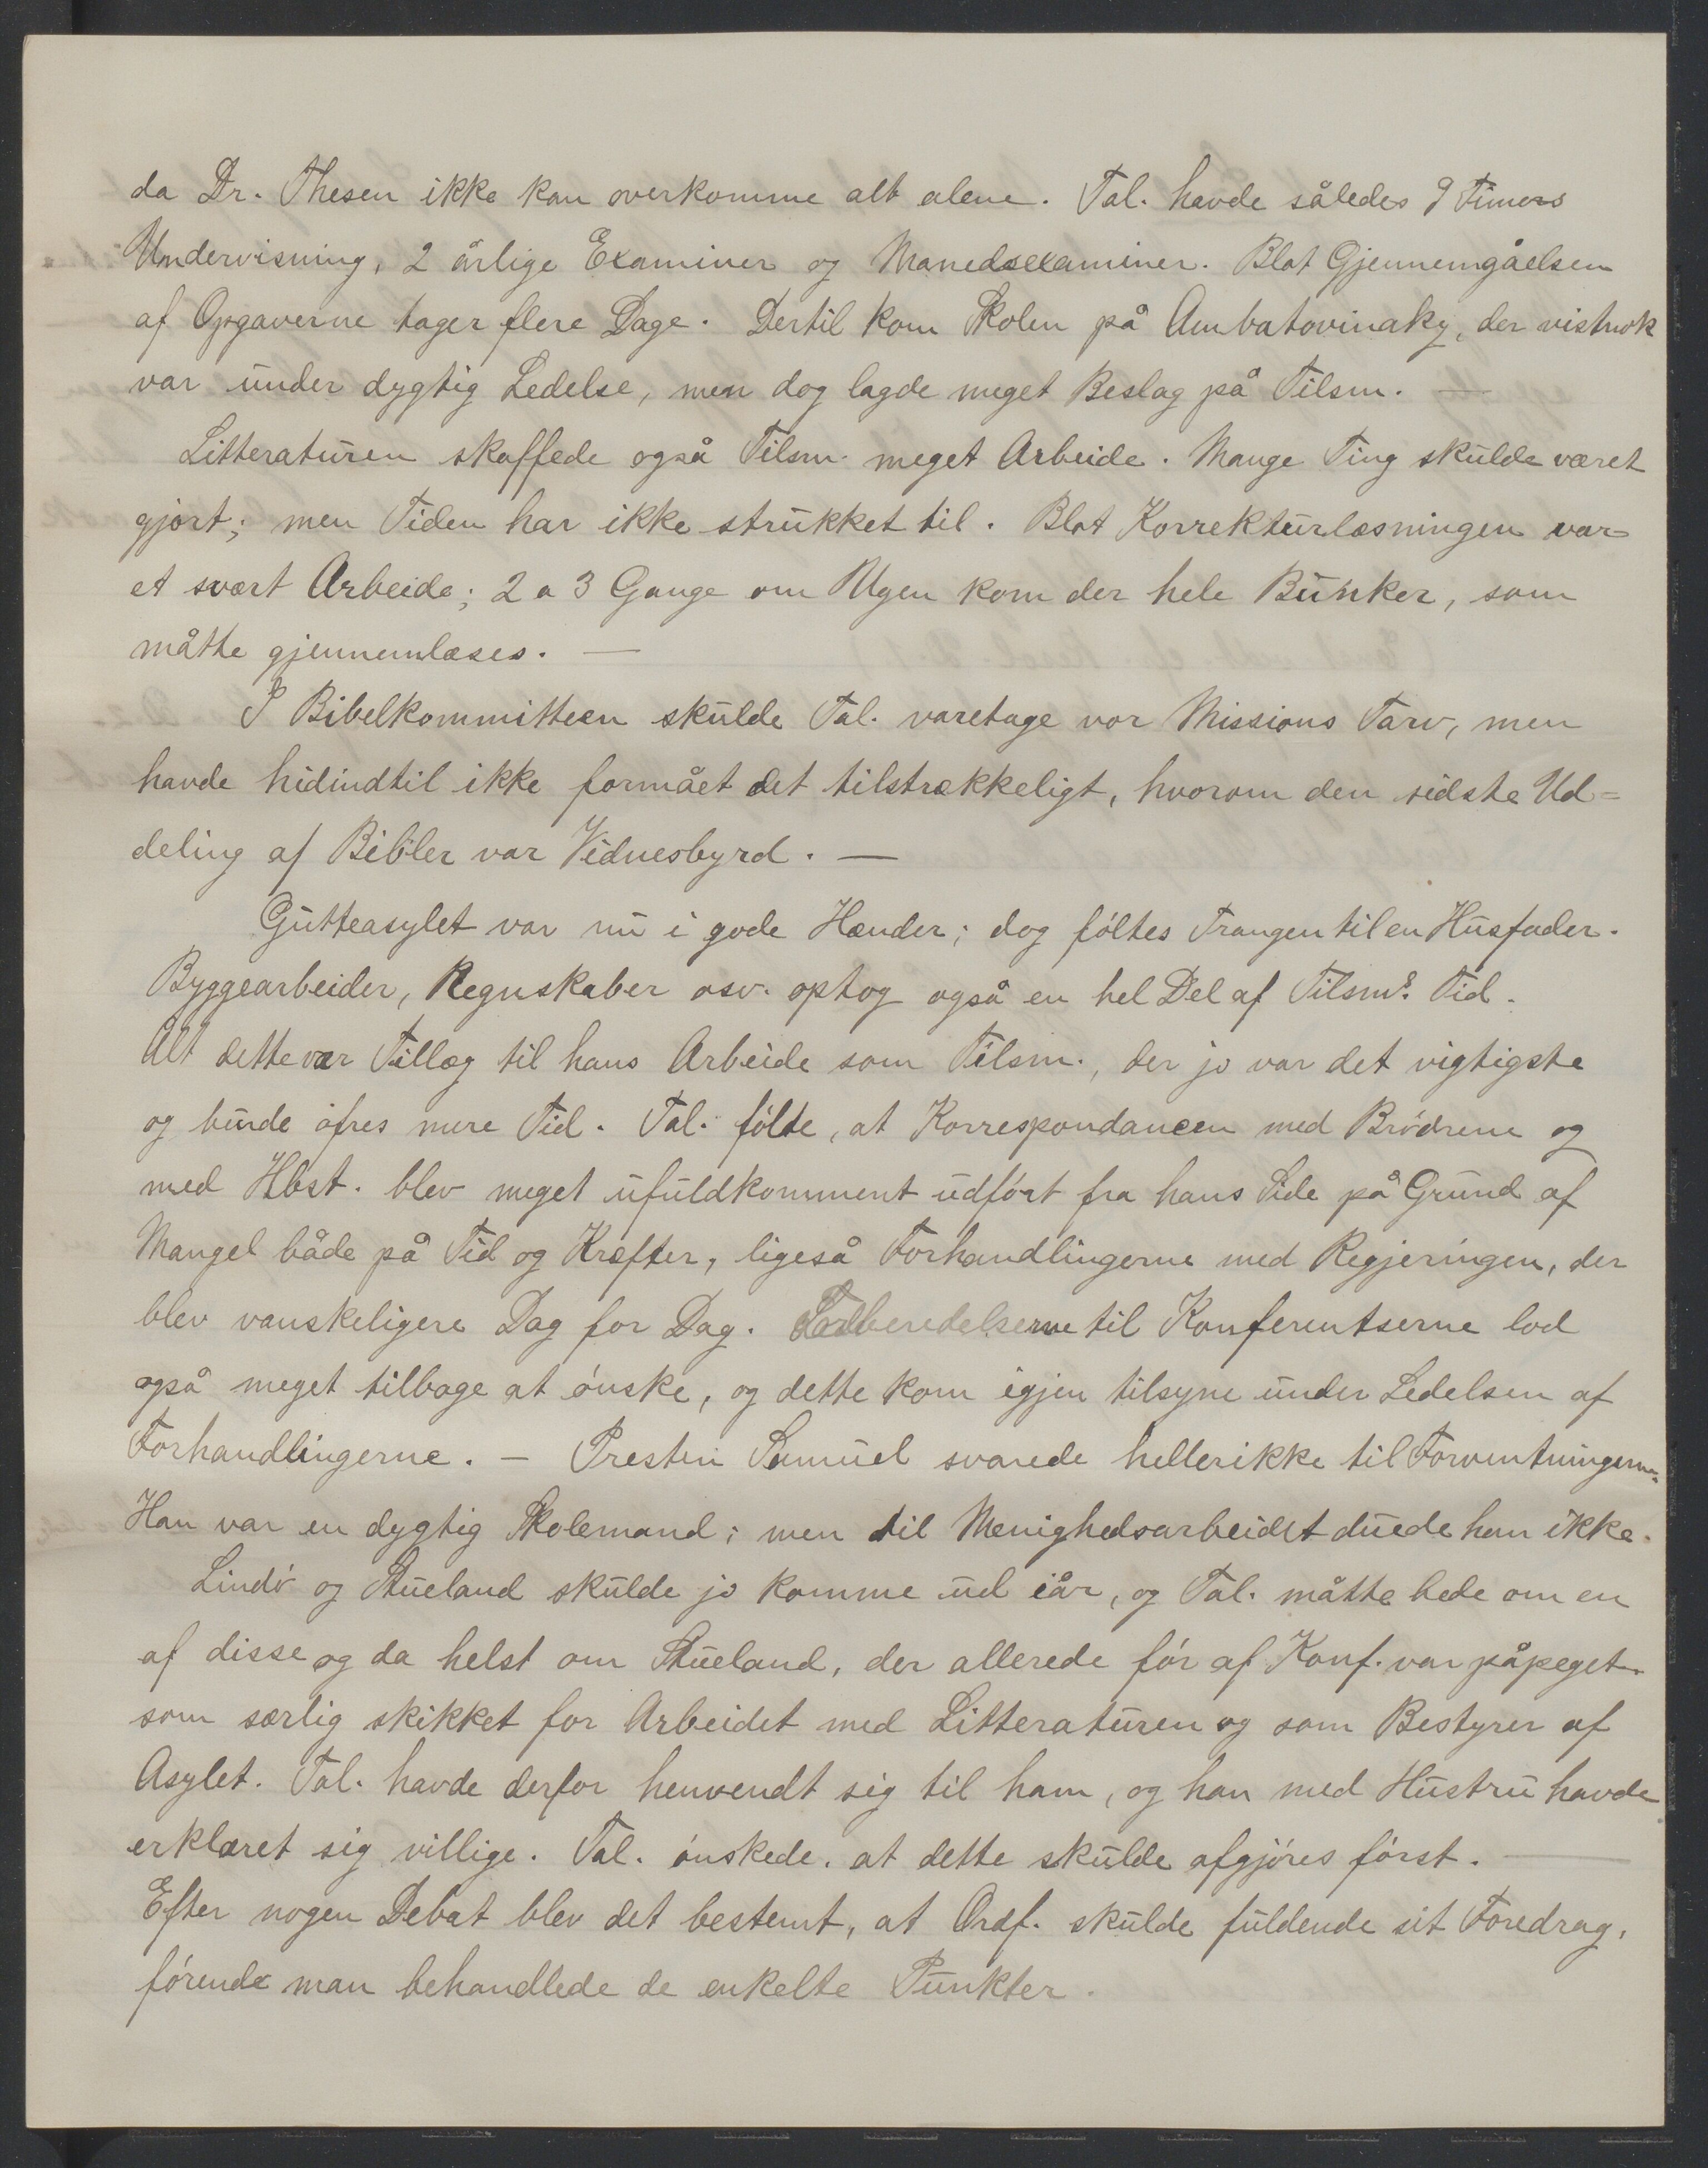 da Dr. Thesen ikke kan overkomme alt alene. Tal. havde således 9 Timers
Undervisning, 2 årlige Examiner og Manedsexaminer. Blot Gjennemgåelsen
af Opgaverne tager flere Dage. Dertil kom Skolen på Ambatovinaky, der vistnok
var under dygtig Ledelse, men dog lagde meget Beslag på Tilsm. —
Litteraturen skaffede også Tilsm. meget Arbeide. Mange Ting skulde været
gjort; men Tiden har ikke strukket til. Blot Korrekturlæsningen var
et svært Arbeide; 2 a 3 Gange om Ugen kom der hele Bunker, som
måtte gjennemlæses. —
I Bibelkommitteen skulde Tal. varetage vor Missions Tarv, men
havde hidindtil ikke formået det tilstrækkeligt, hvorom den sidste Ud=
deling af Bibler var Vidnesbyrd. —
Gutteasylet var nu i gode Hænder; dog føltes Trangen til en Husfader.
Byggearbeider, Regnskaber osv. optog også en hel Del af Tilsms. Tid.
Alt dette var Tillæg til hans Arbeide som Tilsm., der jo var det vigtigste
og burde ofres mere Tid. Tal. følte, at Korrespondancen med Brødrene og
med Hbst. blev meget ufuldkomment udført fra hans Side på Grund af
Mangel både på Tid og Kræfter, ligeså Forhandlingerne med Regjeringen, der
blev vanskeligere Dag for Dag. Forberedelserne til Konferentserne lod
også meget tilbage at ønske, og dette kom igjen tilsyne under Ledelsen af
Forhandlingerne. — Presten Samuel svarede hellerikke til Forventningerne.
Han var en dygtig Skolemand; men til Menighedsarbeidet duede han ikke.
Lindø og Stueland skulde jo komme ud iår, og Tal. måtte bede om en
af disse og da helst om Stueland, der allerede før af Konf. var påpeget
som særlig skikket for Arbeidet med Litteraturen og som Bestyrer af
Asylet. Tal. havde derfor henvendt sig til ham, og han med Hustru havde
erklæret sig villige. Tal. ønskede. at dette skulde afgjøres først. —
Efter nogen Debat blev det bestemt, at Ordf. skulde fuldende sit Foredrag,
førende man behandlede de enkelte Punkter.